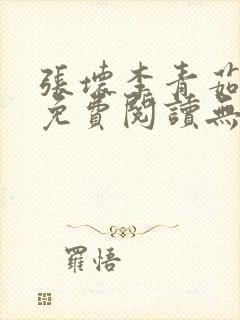 張壞李青茹
免費閱讀無
羅悟